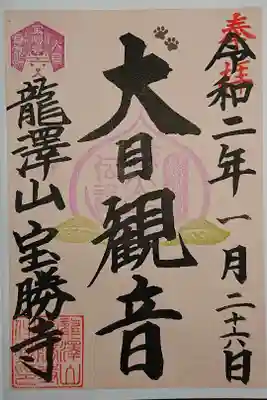 奉拝
令和二年一月二十六日
犬目観音
龍澤山宝勝寺